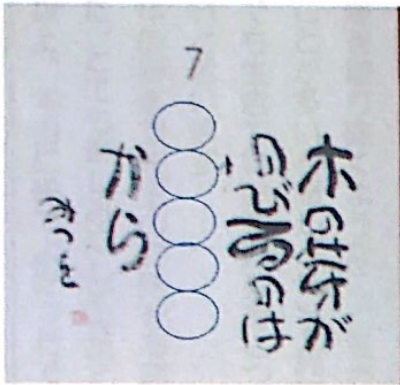 木の芽が
のびるのは
7
から
みつを